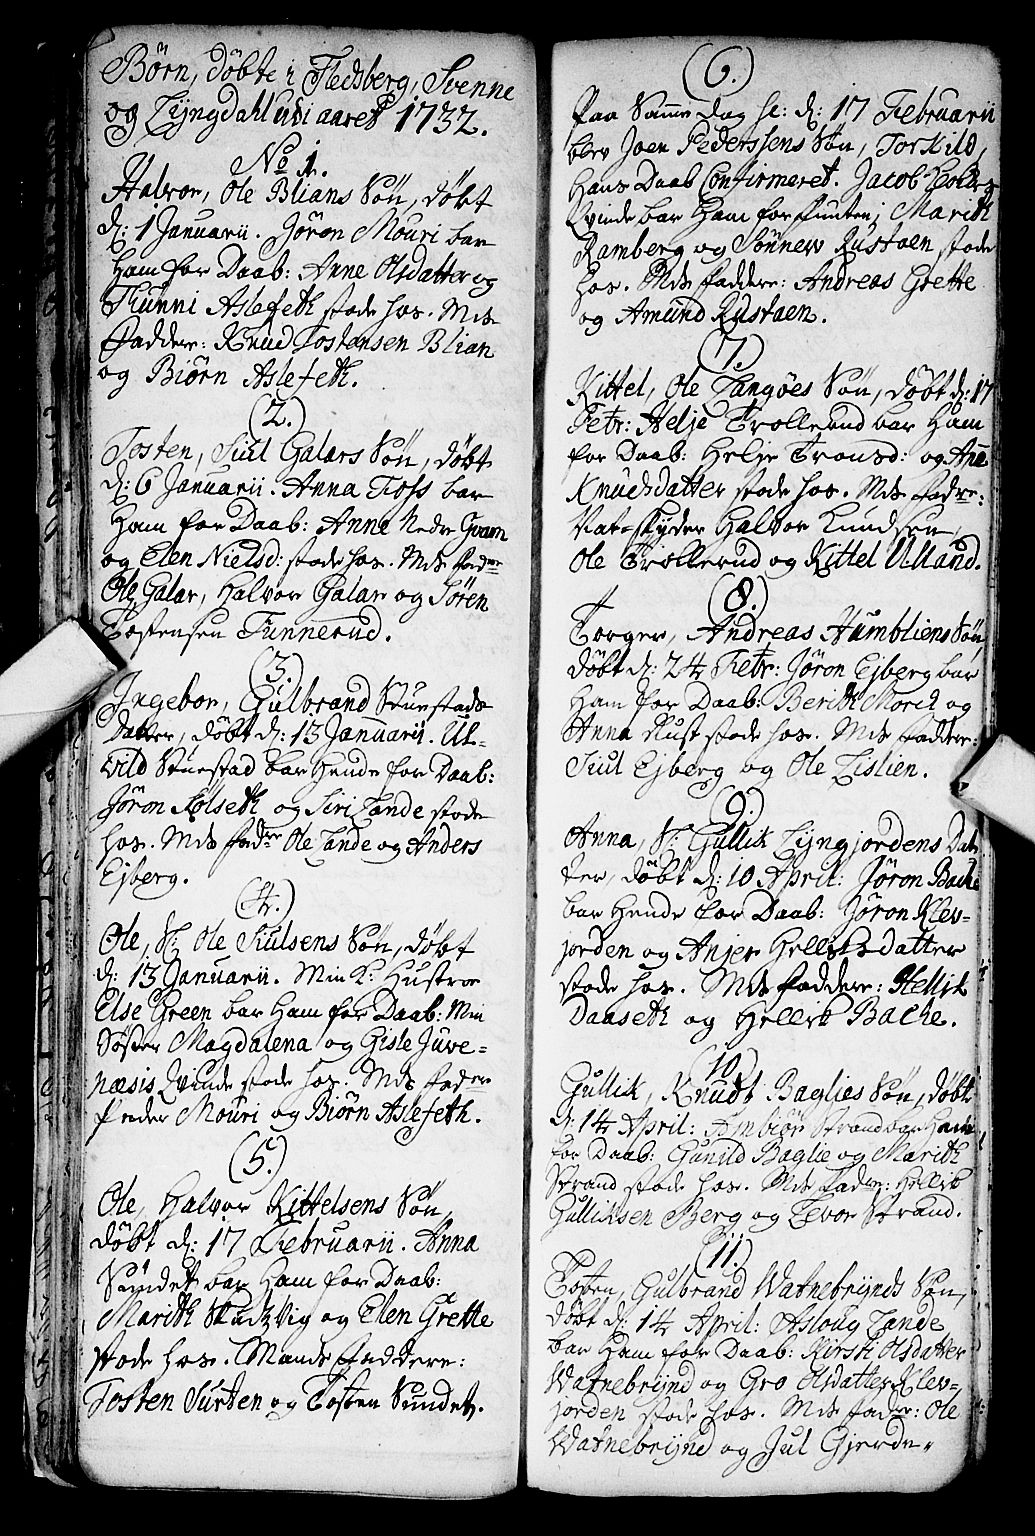 Børn, døbte i Fledsberg, Svenne
og Lÿngdahl udi aaret 1732.
No 1.
Halvor, Ole Blians Søn, døbt
d: 1 Januarii. Jöron Mouri bar
Ham for Daab: Anne Olsdatter og
Gunni Aslefeth stode hos. Mds
Faddre: Knud Tostensen Blian
og Biörn Aslefeth.
(2.)
Tosten, Juul Galars Søn, døbt
d: 6 Januarii. Anna Foss bar
Ham for Daab: Anne Nedre Gvarn
og Elen Nielsd: stode hos. Mds fadre
Ole Galar, Halvor Galar og Sören
Tostensen Funnerud.
(3.)
Ingebor, Gulbrand Stuestads
Datter, døbt d: 13 Januarii. Ul-
vild Stuestad bar Hende for Daab:
Jöron Solseth og Siri Lande stode
hos. Mds fadre Ole Lande og Anders
Ejberg.
(4.)
Ole, Sl: Ole Juulsens Søn, døbt
d: 13 Januarii. Min K: Hustroe
Else Green bar Ham for Daab: Min
Søster Magdalena og Gisle Juve-
næsis Qvinde stode hos. Mds fadre
Peder Mouri og Biörn Aslefeth.
(5.)
Ole, Halvor Kittelsens Søn,
døbt d: 17 Februarii. Anna
Sundet bar Ham for Daab:
Marith Studzvig og Elen Grette
stode hos. Mands Faddere:
Tosten Surten og Tosten Sundet.
(6.)
Paa Samme dag sc: d: 17 Februarii
blev Joen Pederssens Søn, Torkild,
Hans Daab Confirmeret. Jacob
Qvinde bar Ham for Funten; Marith
Ramberg og Sønnew Rustaen stode
hos. Mds faddere: Andreas Grette
og Amund Rustaen.
(7.)
Kittel, Ole Langöes Søn, døbt d: 17
Febr: Helje Trollerud bar Ham
for Daab: Helje Tronsd: og Anne
Knudsdatter stode hos. Mds fadre:
Halvor Knudsen,
Ole Trollerud og Kittel Ulland.
(8.)
Torger, Andreas Humbliens Søn,
døbt d: 24 Febr: Jöron Ejberg bar
Ham for Daab: Berith Morch og
Anna Rust stode hos. Mds Faddre:
Juul Ejberg og Ole Lislien.
(9.)
Anna, Sl: Gullik Lÿngjordens Dat-
ter, døbt d: 10 April: Jöron Bache
bar Hende for Daab: Jöron Klev-
jorden og Anjer Helliksdatter
stode hos. Mds faddere: Hellik
Daaseth og Hellik Bache.
(10.)
Gullik, Knudt Baglies Søn, døbt
d: 14 April: Ambiör Strand bar Ham
for Daab: Gunild Baglie og Marith
Strand stode hos. Mds Fadre: Hellik
Gulliksen Berg og Tevor Strand.
(11.)
Tosten, Gulbrand Watnebrÿnds Søn,
døbt d: 14 April: Asloug Lande
bar Ham for Daab: Kirsti Olsdatter
Watnebrÿnd og Gro Olsdatter Klev-
jorden stode hos. Mds fadre: Ole
Watnebrÿnd og Jul Gjerde.